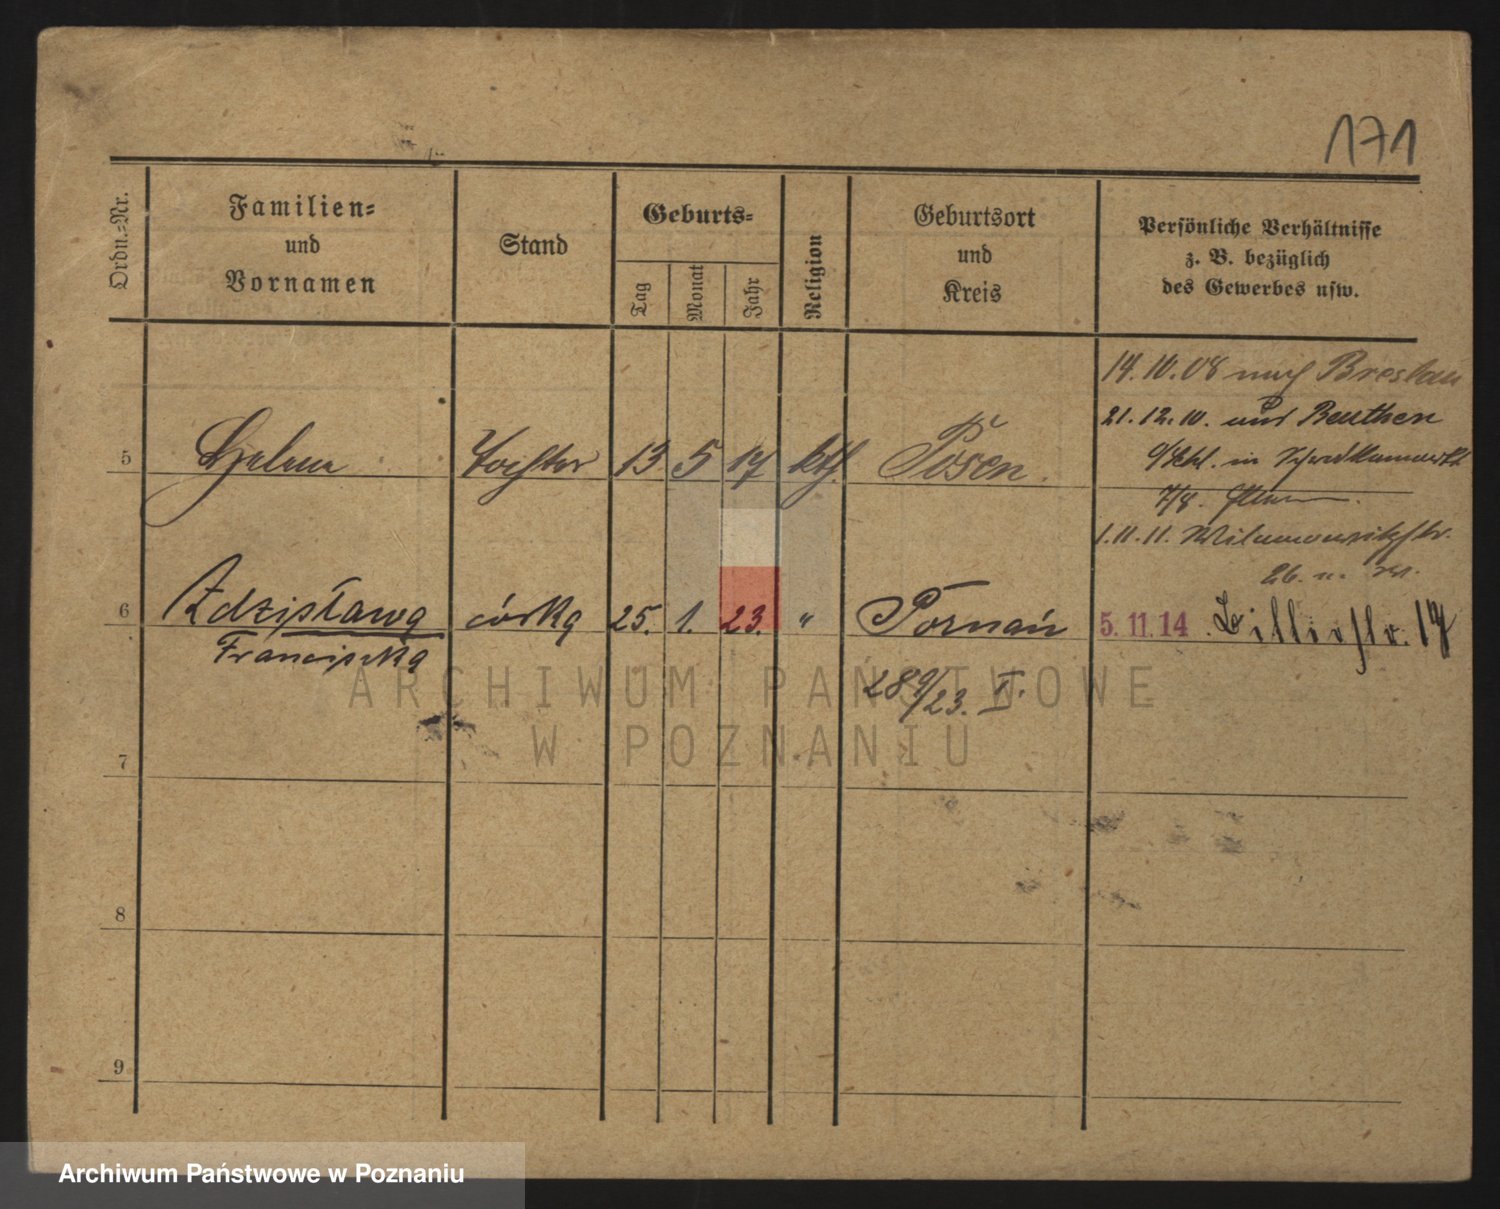 171
Ordn.-Nr.
Familien-
und
Vornamen
Stand
Geburts-
Tag
Monat
Jahr
Religion
Geburtsort
und
Kreis
Persönliche Verhältnisse
z. B. bezüglich
des Gewerbes usw.
14.10.08 nach Breslau
21.12.10. Beuthen
5 Helene Tochter 13 5 17 kth. Posen
in
7/8.
1.11.11.
26.
6 Zdzisława córka 25. 1. 23. " Poznań 5.11.14 17
Franciszka
289/23. I.
7
8
9
ARCHIWUM PAŃSTWOWE
W POZNANIU
Archiwum Państwowe w Poznaniu